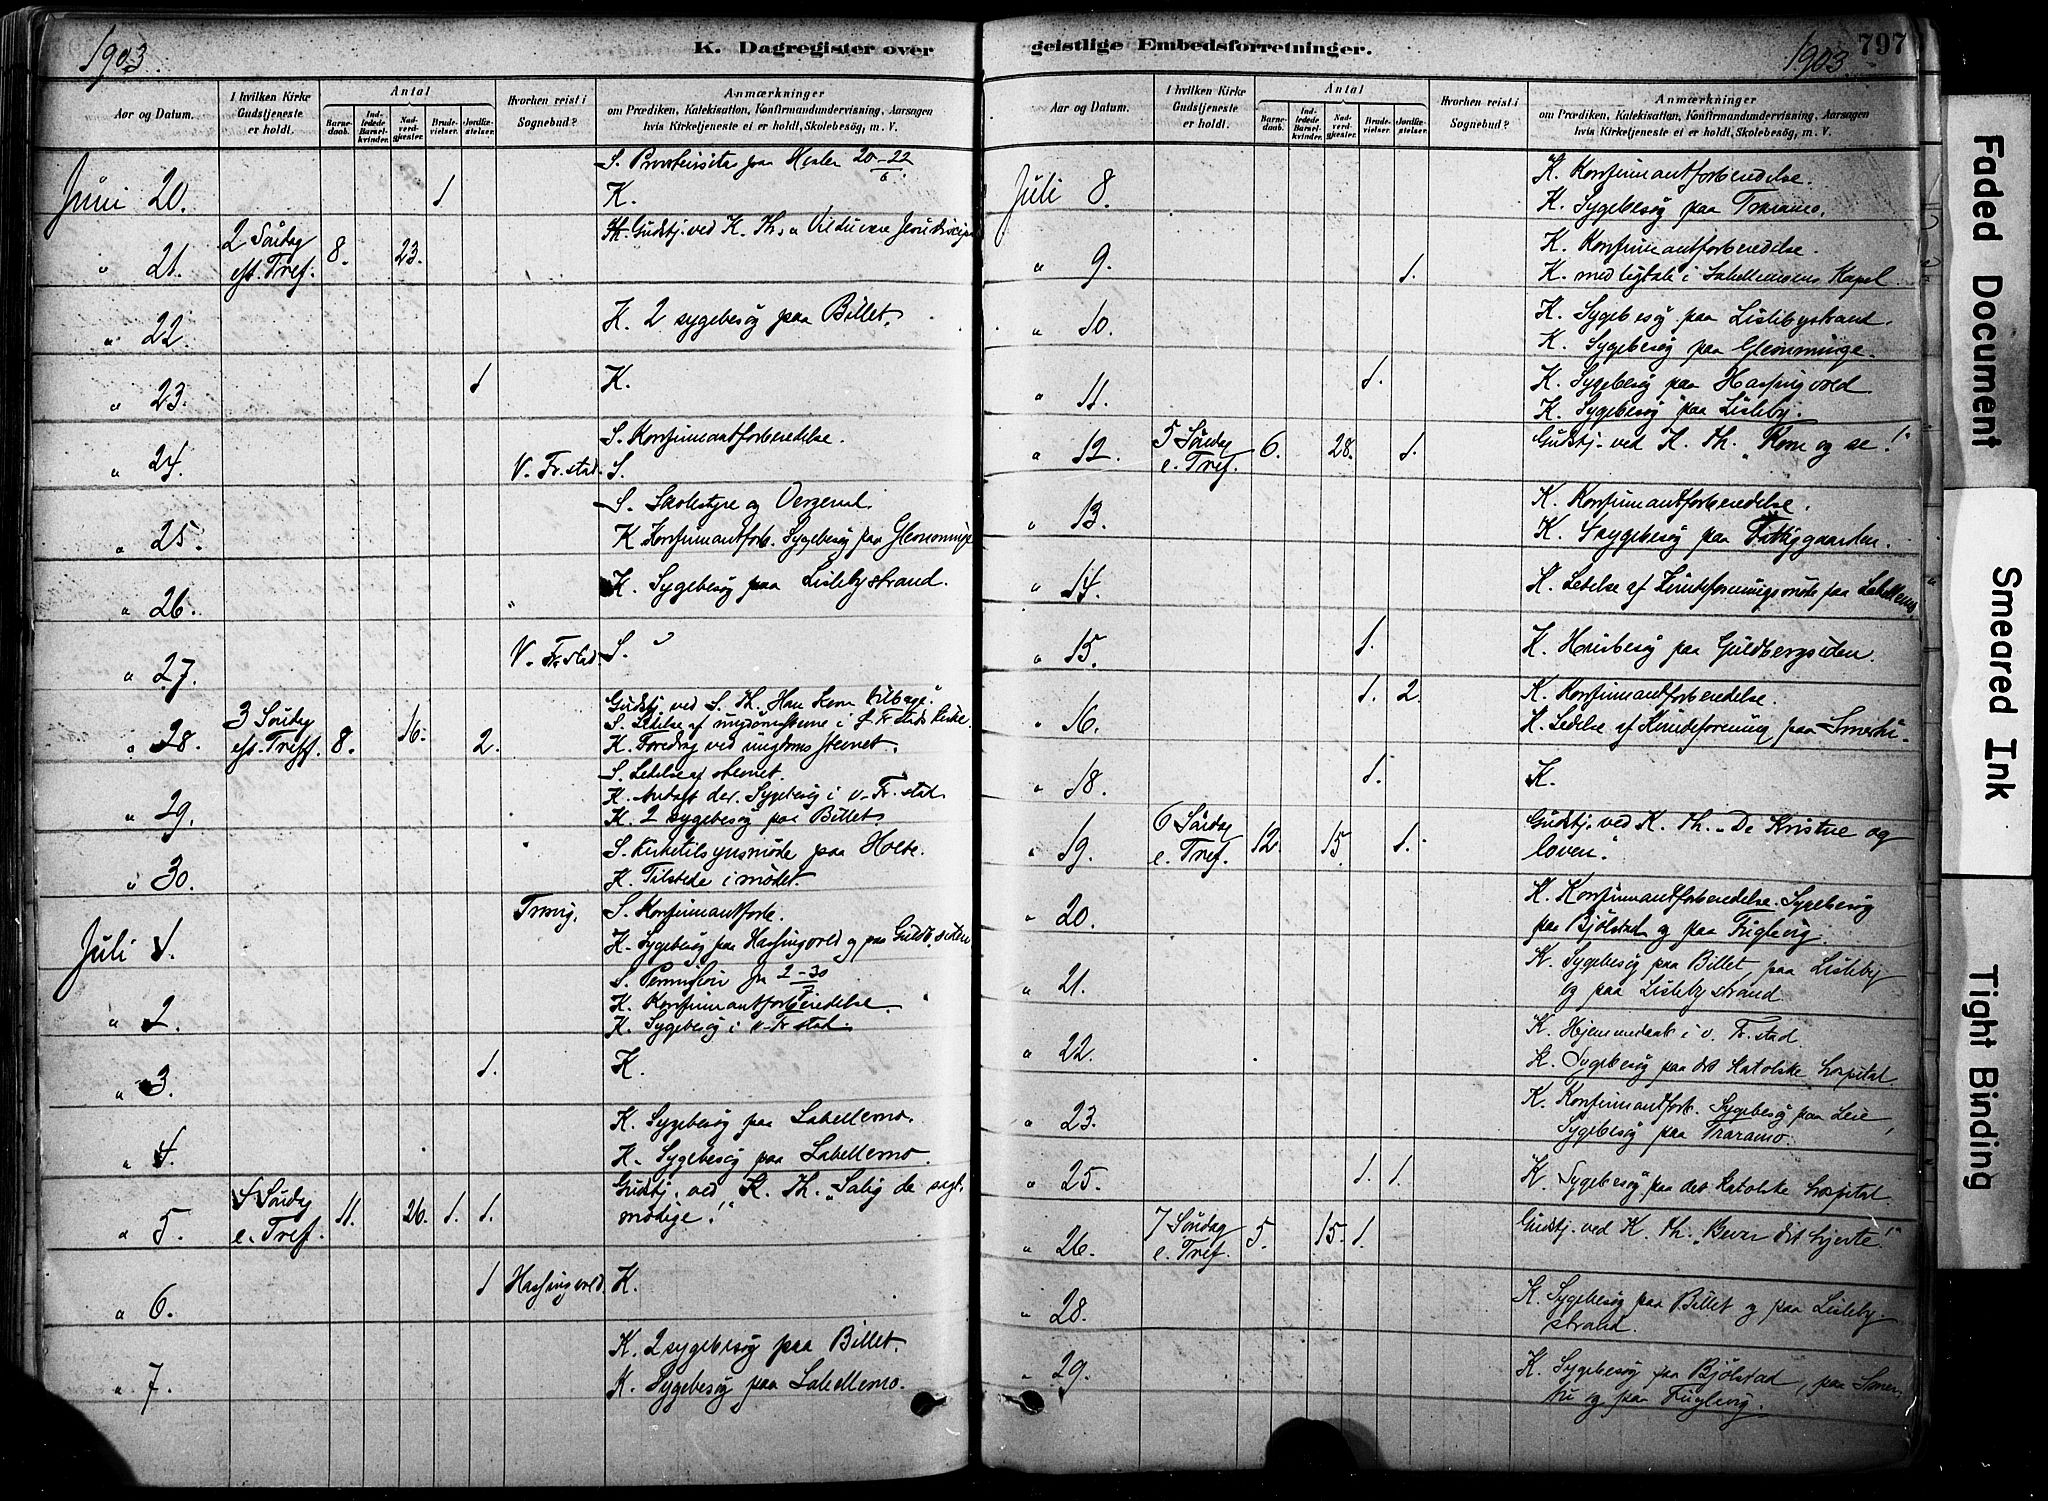 1903
K. Dagregister over
Aar og Datum.
I hvilken Kirke Gudstjeneste er holdt.
Antal
Barnedaab.
Indledede Barselkvinder.
Nadverdgjester.
Brudevielser.
Jordfæstelser.
Hvorhen reist i Sognebud?
Anmærkninger
om Prædiken, Katekisation, Konfirmandundervisning, Aarsagen
hvis Kirketjeneste ei er holdt, Skolebesög, m. V.
S. Provstevisitas paa Hvaler 20-22/6.
Juni 20. 1 K.
" 21. 2 Söndag eft. Tref. 8. 23. Gudstj. ved K. Th. " Vil du være Jesu discipel
" 22. K. 2 sygebesög paa Billet.
" 23. 1 K.
S. Konfirmantforberedelse.
" 24. V. Fr.stad. S.
S. Skolestyre og Vergeraad.
" 25. K Konfirmantforb. Sygebesög paa Glemminge
" 26. " K. Sygebesög paa Lislebystrand.
" 27. V. Fr.stad. S.
" 28. 3 Söndag eft. Tref. 8. 16. 2. Gudstj. ved S. Th. Han kom tilbage".
S. Ledelse af ungdomsstevne i Ö Fr.stads kirke.
K. Foredrag ved ungdomsstevnet.
S. Ledelse af stevnet.
" 29. K. Andagt der. Sygebesög i V. Fr.stad.
K. 2 sygebesög paa Billet.
S. Kirketilsynsmöde paa Holte.
" 30. K. Tilstede i mödet.
Tronvig. S. Konfirmantforb.
Juli 1. K. Sygebesög paa Hassingveld og paa Guldb.siden
S. Permission fra 2-30/7
" 2. K. Konfirmantforberedelse.
K. Sygebesög i V. Fr.stad.
" 3. 1. K.
K. Sygebesög paa Labellemo.
" 4. K. Sygebesög paa Labellemo.
" 5. 4 Söndag e. Tref. 11. 26. 1. 1. Gudstj. ved K. Th. "Salig de sagtmodige!"
" 6. 1 Hassingveld. K.
K. 2 sygebesög paa Billet.
" 7. K. Sygebesög paa Labellemo.
geistlige Embedsforretninger.
1903.
797
Aar og Datum.
I hvilken Kirke Gudstjeneste er holdt.
Antal
Barnedaab.
Indledede Barselkvinder.
Nadverdgjester.
Brudevielser.
Jordfæstelser.
Hvorhen reist i Sognebud?
Anmærkninger
om Prædiken, Katekisation, Konfirmandundervisning, Aarsagen
hvis Kirketjeneste ei er holdt, Skolebesög, m. V.
K. Konfirmantforberedelse.
Juli 8. K. Sygebesög paa Traramo.
K. Konfirmantforberedelse.
" 9. 1. K. med ligtale i Labellemoens Kapel.
K. Sygebesög paa Lislebystrand.
" 10. K. Sygebesög paa Glemminge.
" 11. 1. K. Sygebesög paa Hassingveld
K. Sygebesög paa Lisleby.
" 12. 5 Söndag e. Tref. 6. 28. 1. Gudstj. ved K. Th. "Kom og se!"
K. Konfirmantforberedelse.
" 13. K. Sygebesög paa Fattiggaarden.
" 14. K. Ledelse af Kvindeforeningsmöde paa Labellemo.
" 15. 1. K. Husbesög paa Guldbergsiden.
" 16. 1. 2. K. Konfirmantforberedelse.
K. Ledelse af Kvindeforening paa Smertu.
" 18. 1. K.
" 19. 6 Söndag e. Tref. 12. 15. 1. Gudstj. ved K. Th. "De Kristne og
loven".
" 20. K. Konfirmantforberedelse. Sygebesög
paa Bjölstad og paa Fuglevig.
" 21. K. Sygebesög paa Billet, paa Lisleby
og paa Lislebystrand.
" 22. K. Hjemmedaab i V. Fr.stad
K. Sygebesög paa det katolske hospital
" 23. K. Konfirmantforb. Sygebesög paa Leie,
Sygebesög paa Traramo.
" 25. 1. 1. K. Sygebesög paa det katolske hospital.
" 26. 7 Söndag e. Tref. 5. 15. 1. Gudstj. ved K. Th. "Bevar dit hjerte!"
" 28. K. Sygebesög paa Billet og paa Lislebystrand.
" 29. K Sygebesög paa Bjölstad, paa Smertu og paa Fuglevig.
Faded Document
Smeared Ink
Tight Binding